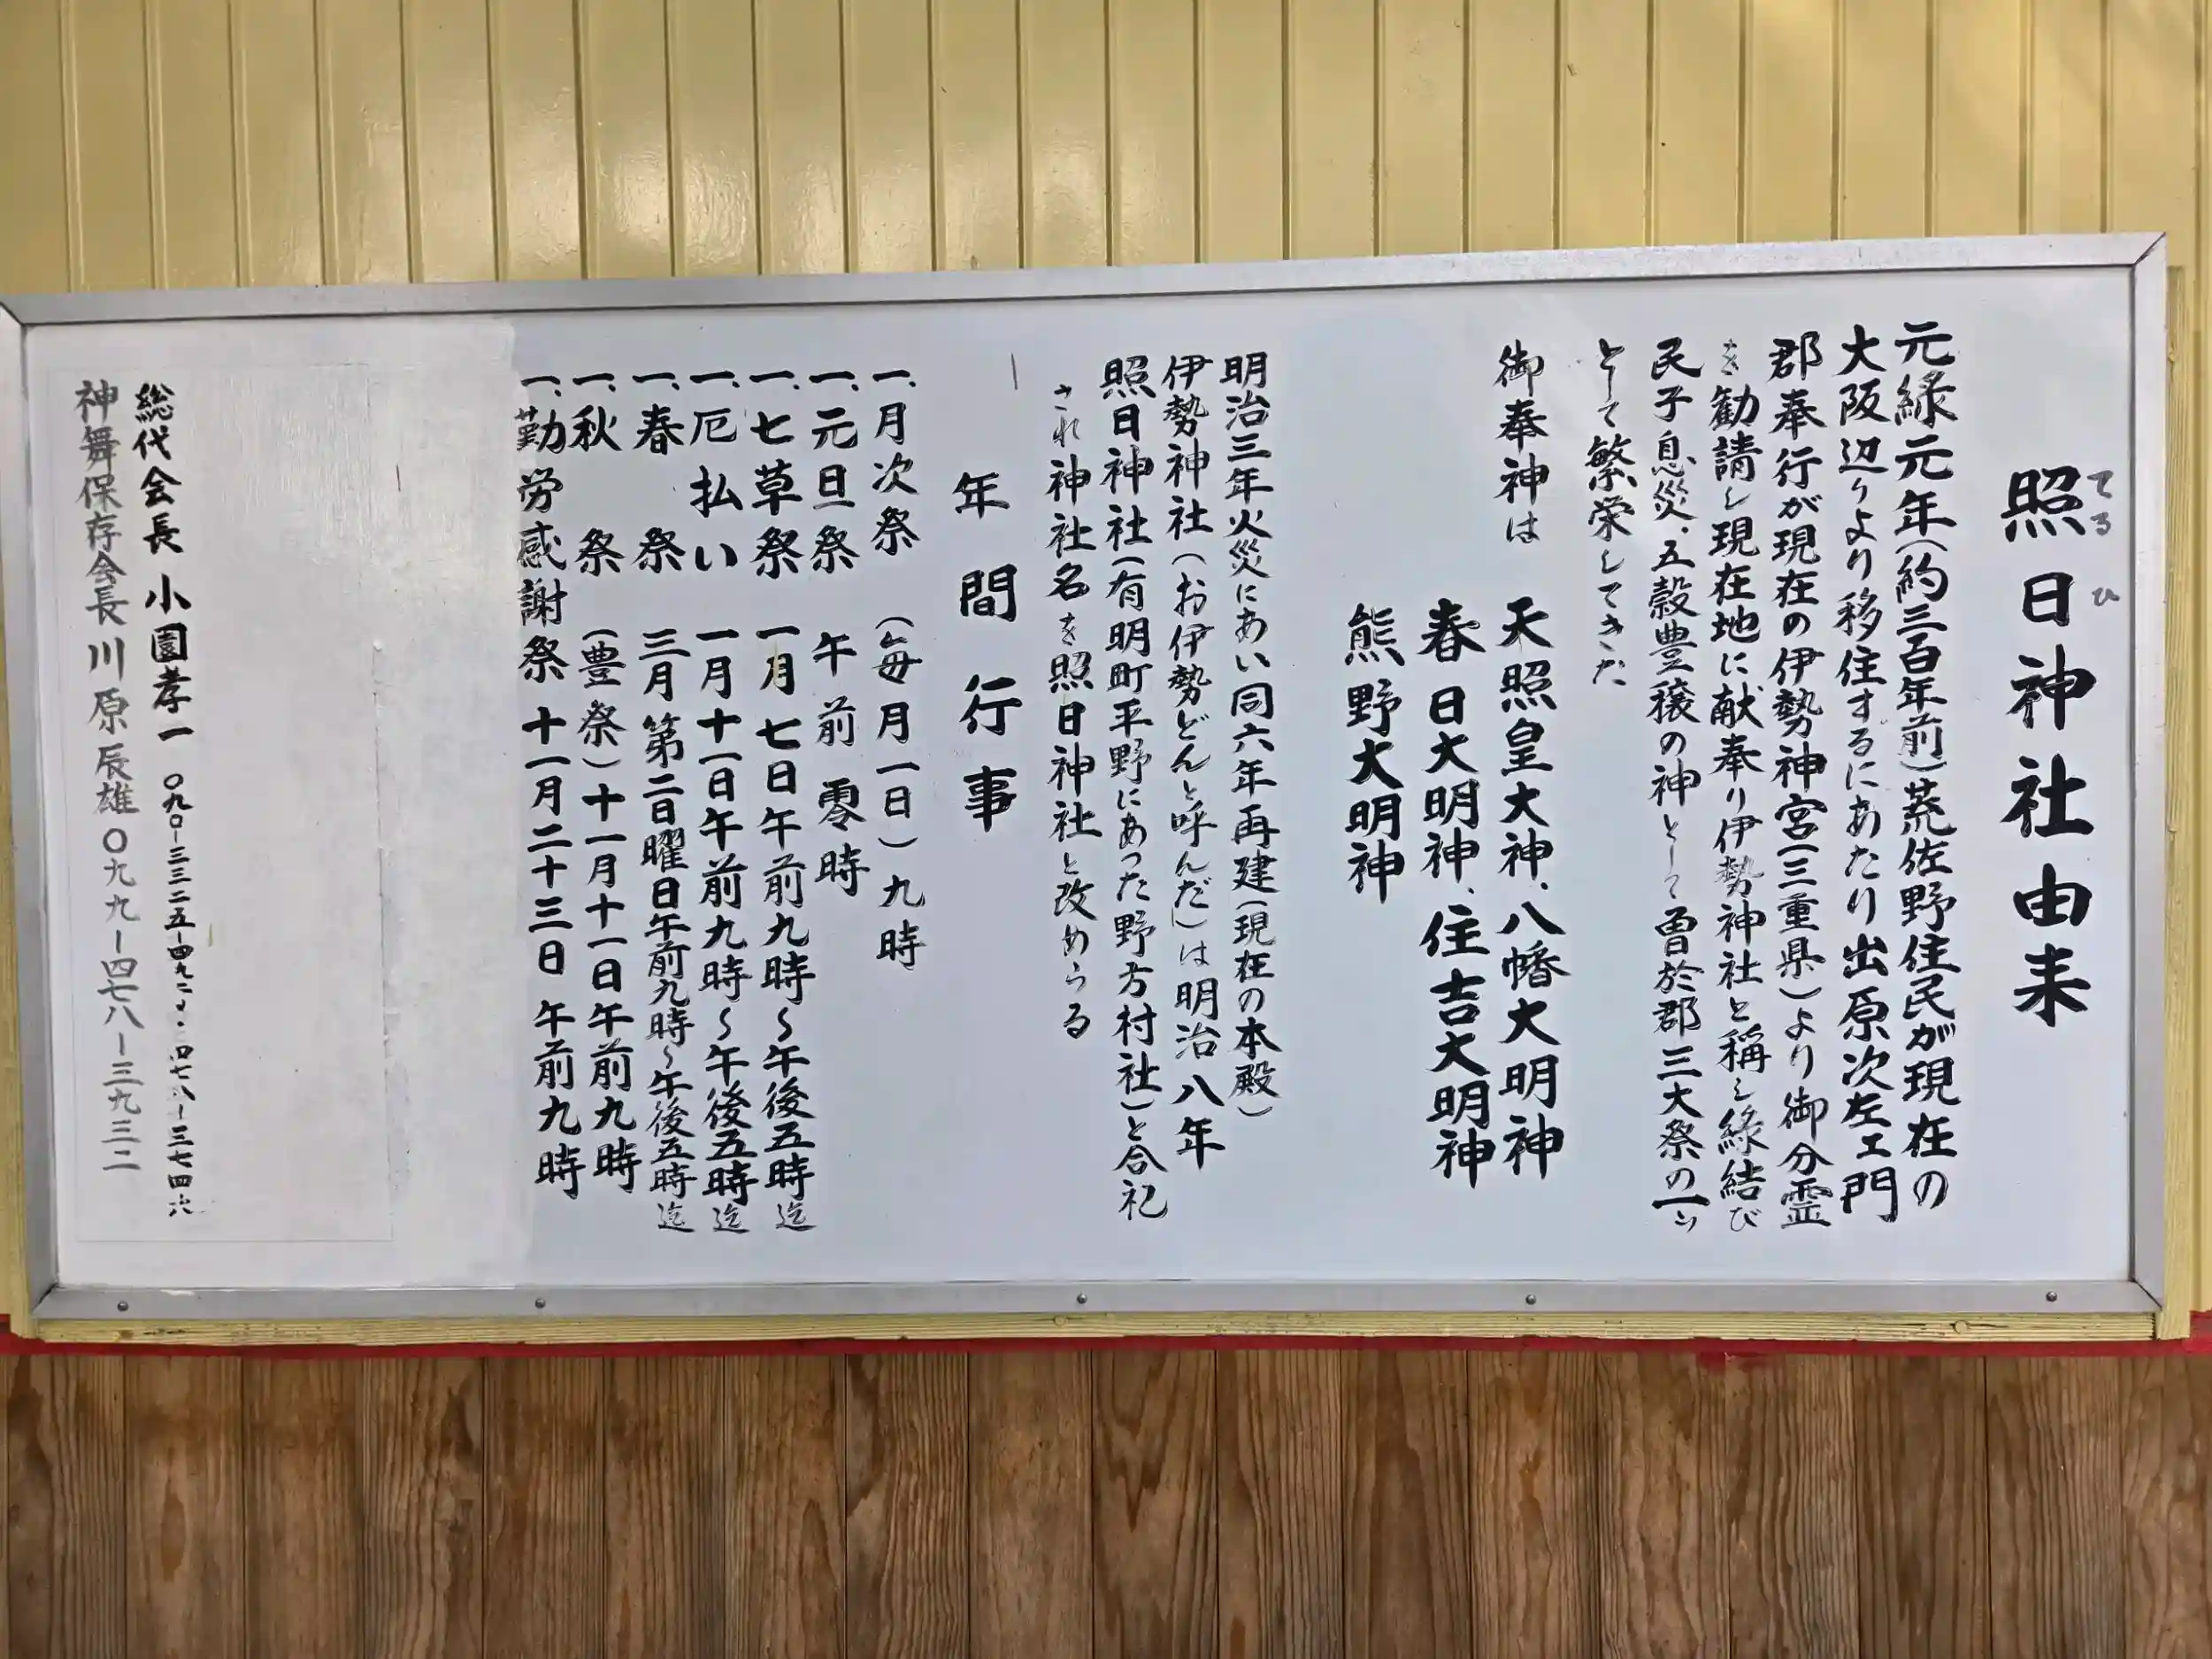 照日神社由来
てるひ
元緑元年(約三百年前)荒佐野住民が現在の
大阪辺りより移住するにあたり出原次左エ門
郡奉行が現在の伊勢神宮(三重県)より御分霊
を勧請し現在地に献奉り伊勢神社と稱し緑結び
民子息災、五穀豊穣の神として曽於郡三大祭の一ッ
として繁栄してきた
御奉神は 天照皇大神、八幡大明神
春日大明神、住吉大明神
熊野大明神
明治三年火災にあい同六年再建(現在の本殿)
伊勢神社(お伊勢どんと呼んだ)は明治八年
照日神社(有明町平野にあった野方村社)と合祀
され神社名を照日神社と改めらる
年間行事
一、月次祭 (毎月一日)九時
一、元旦祭 午前零時
一、七草祭 一月七日午前九時~午後五時迄
一、厄払い 一月十一日午前九時~午後五時迄
一、春祭 三月第二日曜日午前九時~午後五時迄
一、秋祭 (豊祭)十一月十一日午前九時
一、勤労感謝祭 十一月二十三日午前九時
総代会長 小園孝一 〇九〇-三三二五-
神舞保存会長 川原辰雄 〇九九-四七八-三九三二